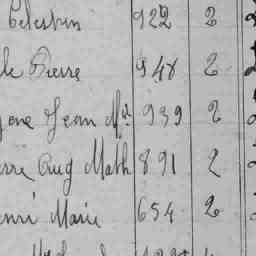 Celestin 922 2
le Pierre 948 2
Jean Mie 939 2
rre Aug Math 891 2
enri Marie 654 2